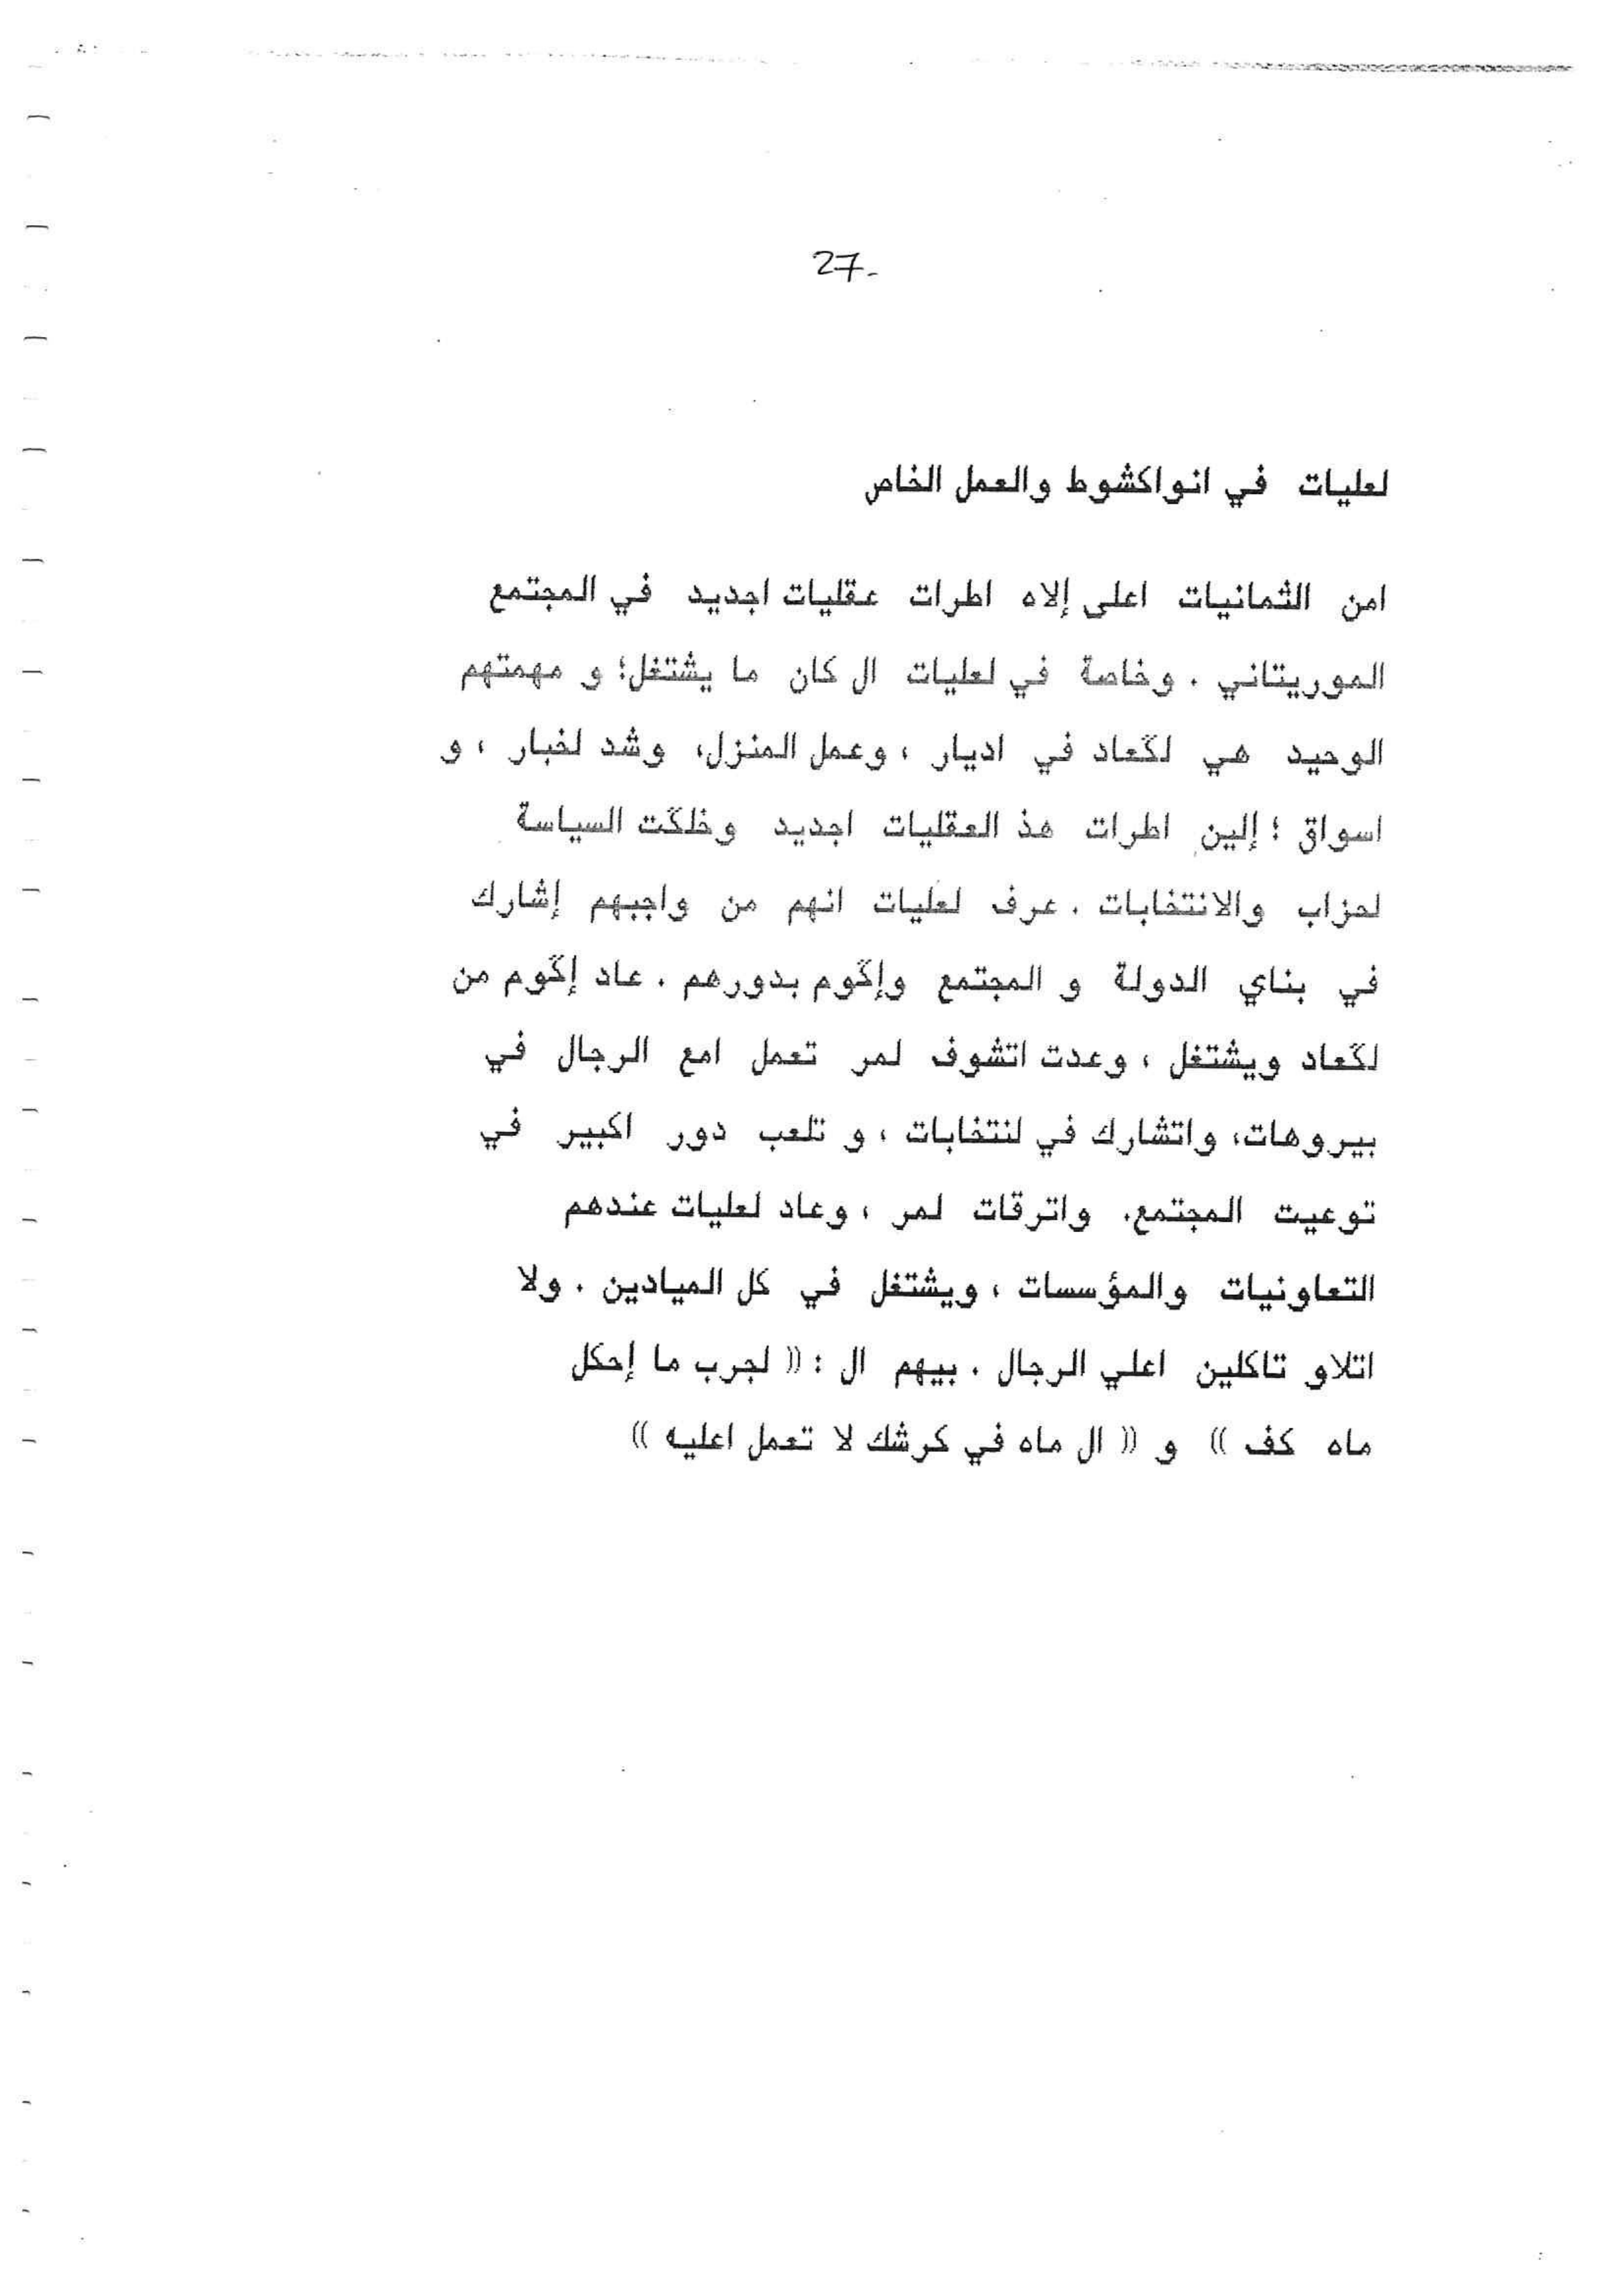 27-
لعليات في انواكشوط والعمل الخاص
امن الثمانيات اعلى إلاه اطرات عقليات اجديد في المجتمع
الموريتاني . وخاصة في لعليات ال كان ما يشتغل؛ و مهمتهم
الوحيد هي لگعاد في اديار ، وعمل المنزل، وشد لخبار ، و
اسواق ؛ إلين اطرات هذ العقليات اجديد وخلگت السياسة
لحزاب والانتخابات . عرف لعليات انهم من واجبهم إشارك
في بناي الدولة و المجتمع وإگوم بدورهم . عاد إگوم من
لگعاد ويشتغل ، وعدت اتشوف لمر تعمل امع الرجال في
بيروهات، واتشارك في لنتخابات ، و تلعب دور اكبير في
توعيت المجتمع. واترقات لمر ، وعاد لعليات عندهم
التعاونيات والمؤسسات ، ويشتغل في كل الميادين . ولا
اتلاو تاكلين اعلي الرجال . بيهم ال : (( لجرب ما إحكل
ماه كف )) و (( ال ماه في كرشك لا تعمل اعليه ))